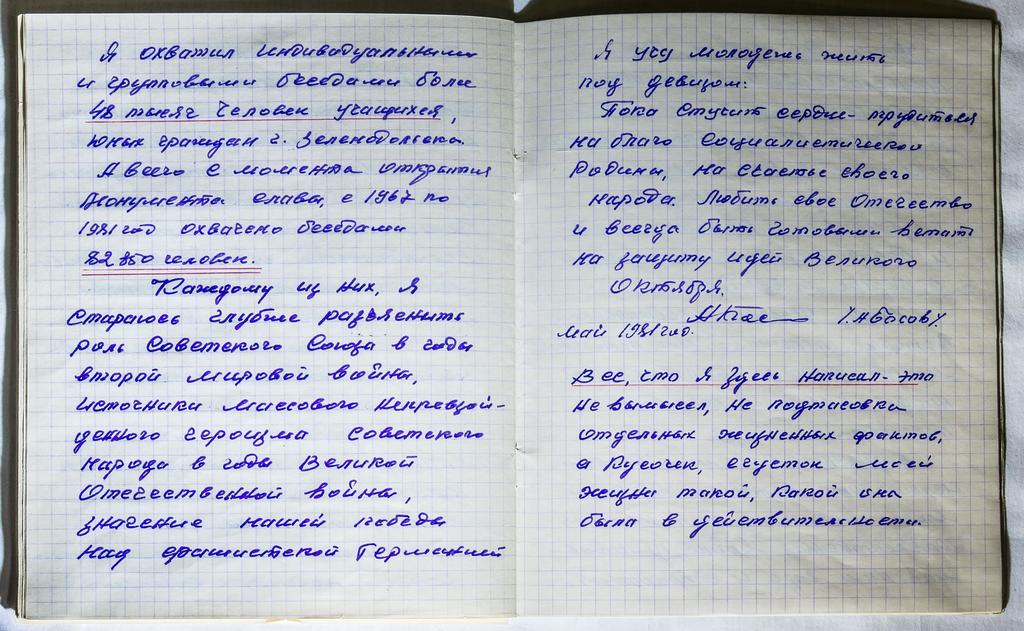 Я охватил индивидуальными
и групповыми беседами более
48 тысяч человек учащихся,
юных граждан г. Зеленодольска.
А всего с момента открытия
Монумента славы, с 1967 по
1981 год охвачено беседами
82 350 человек.
Каждому из них, я
стараюсь глубже разъяснить
роль Советского Союза в годы
второй мировой войны,
источники массового непревзой-
дённого героизма советского
народа в годы Великой
Отечественной войны,
значение нашей победы
над фашистской Германией
Я учу молодежь жить
под девизом:
Пока стучит сердце - трудиться
на благо социалистической
Родины, на счастье своего
народа. Любить свое Отечество
и всегда быть готовыми встать
на защиту идей Великого
Октября.
май 1981 год.
Все, что я здесь написал - это
не вымысел, не подтасовка
отдельных жизненных фактов,
а кусочек, сгусток моей
жизни такой, какой она
была в действительности.